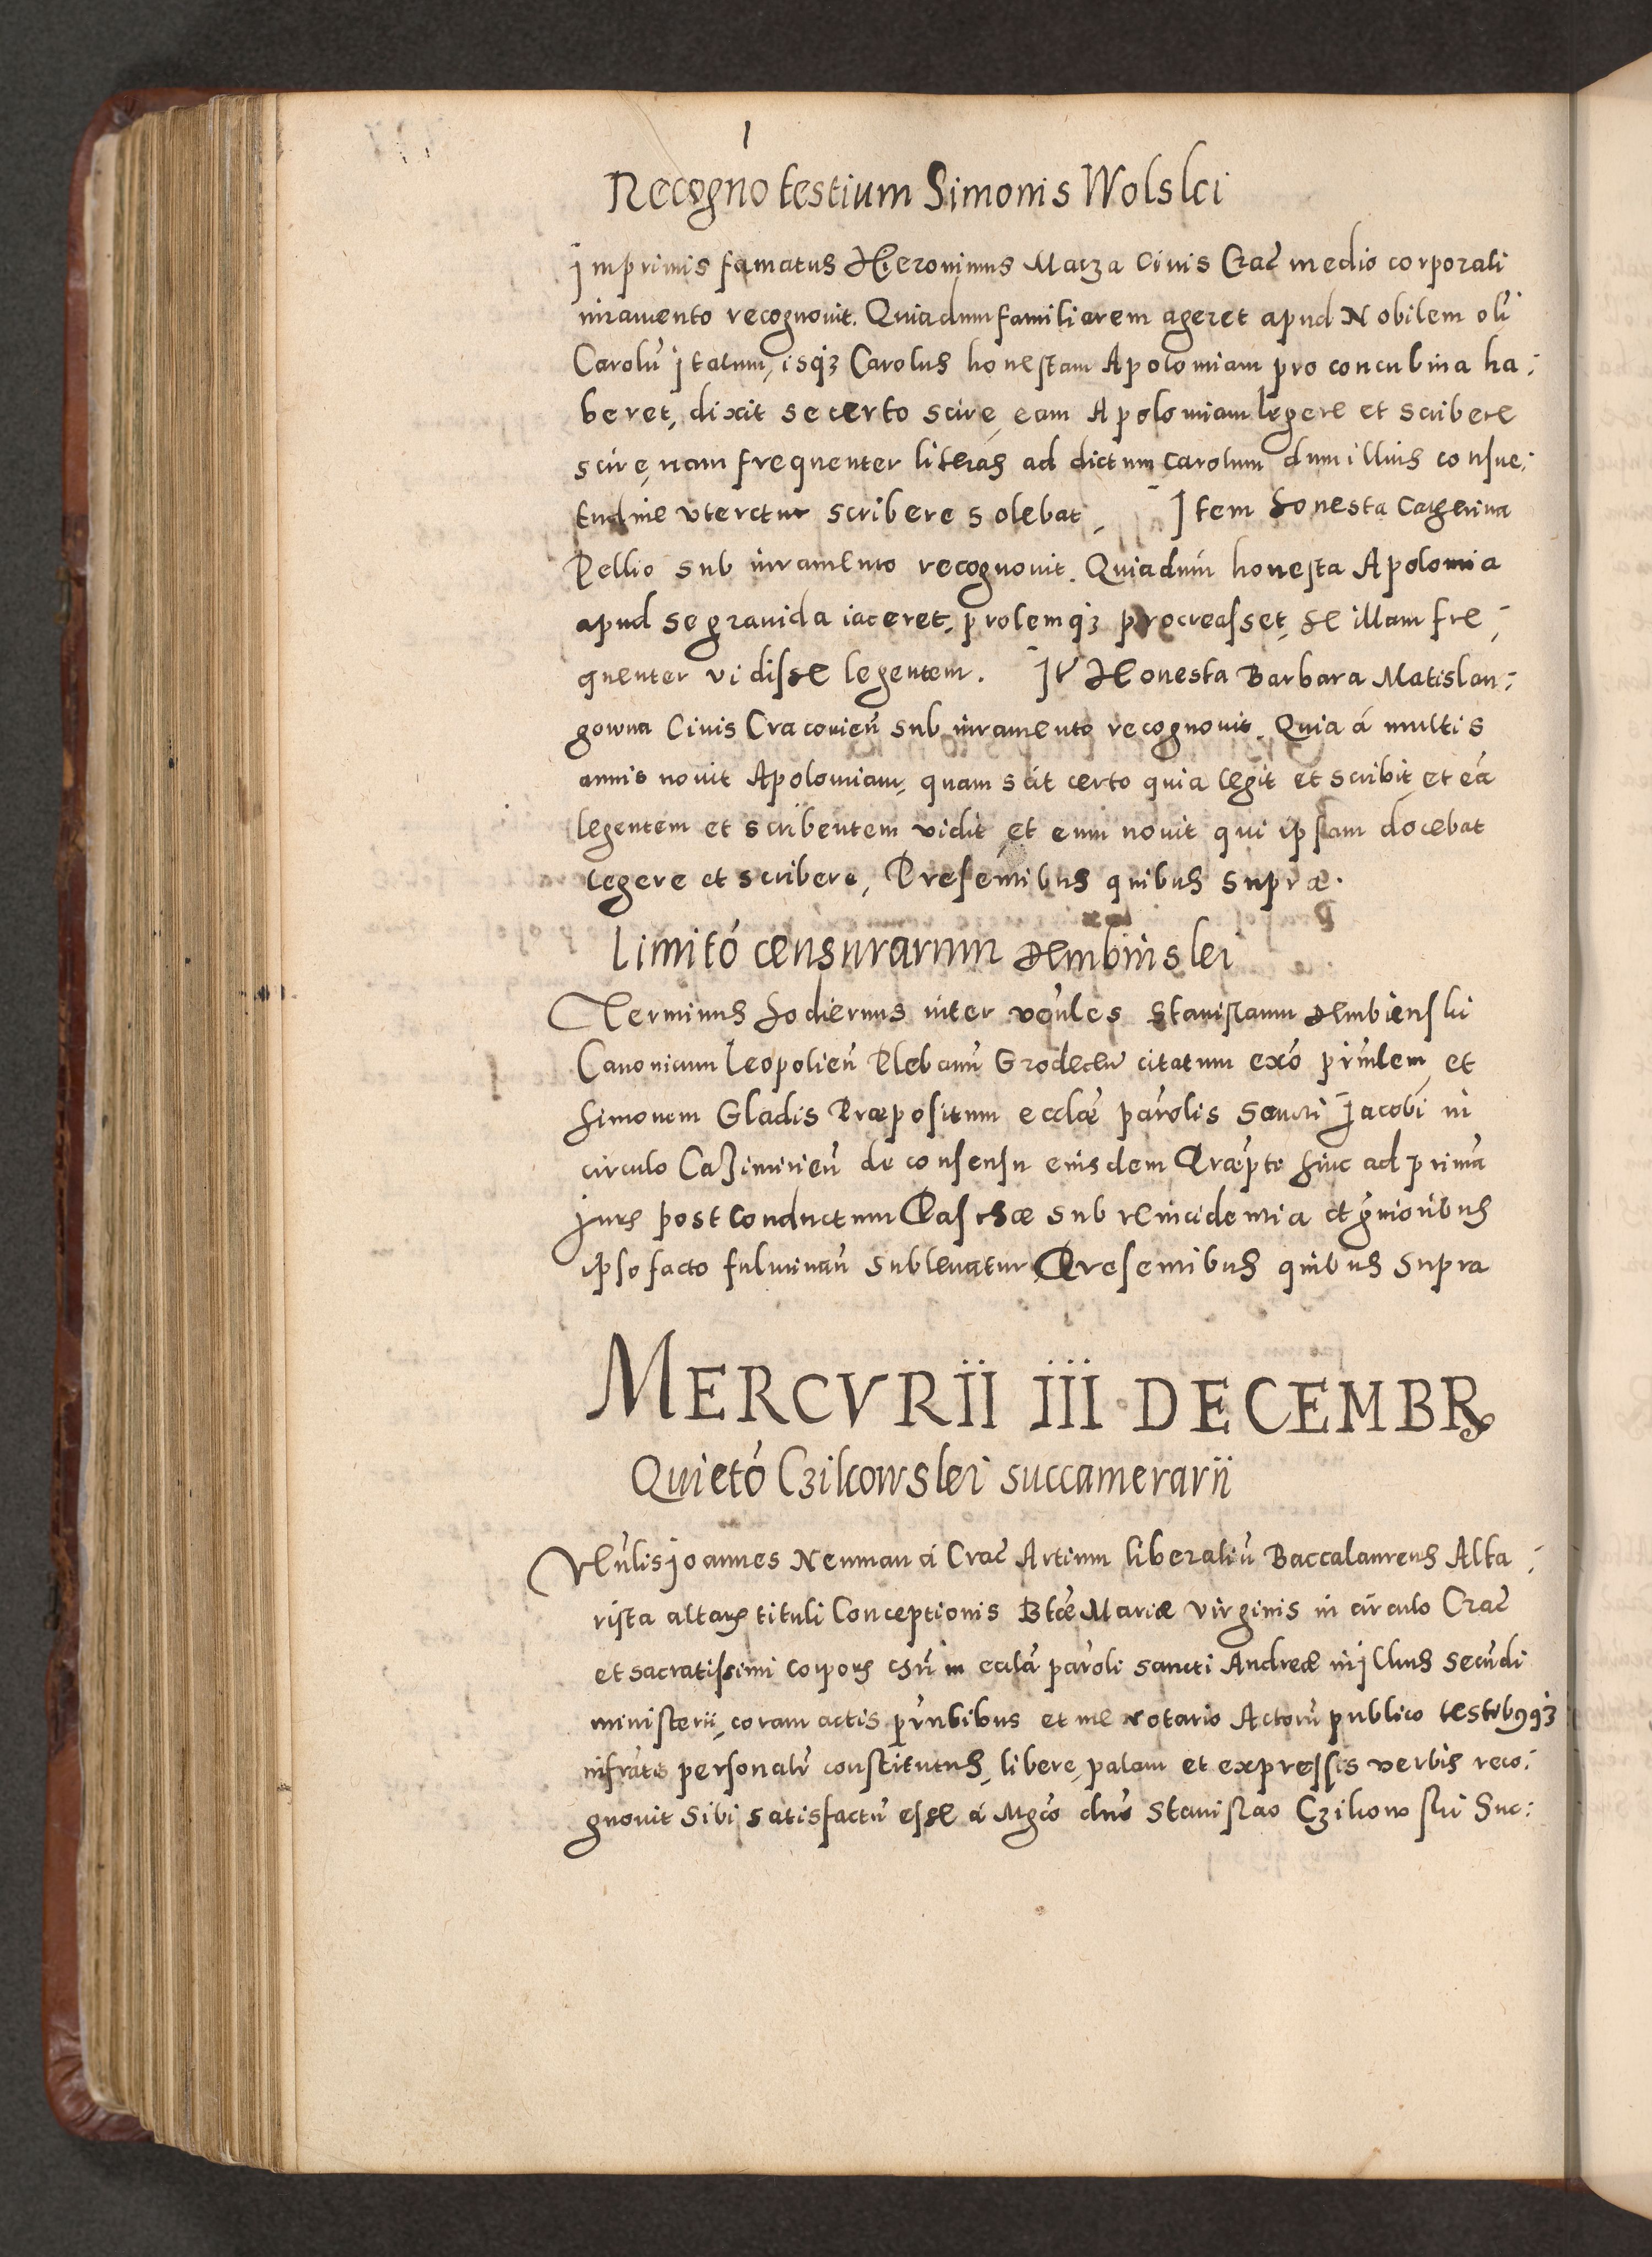 Recogno testium Simonis Wolski
Imprimis famatus Hieronimus Macza Civis Crac medio corporali
iuramento recognouit. Quia dum familiarem ageret apud Nobilem oli
Carolu Italum, isq3 Carolus honestam Apoloniam pro concubina ha:
beret, dixit se certo scire, eam Apoloniam legere et scribere
scire, nam frequenter literas ad dictum Carolum dum illius consue:
tudine vteretur scribere solebat, Item honesta Catherina
Pellio sub iuramento recognouit. Quia dum honesta Apolonia
apud se grauida iaceret, prolemq3 procreasset, se illam fre:
quenter vidisse legentem. It Honesta Barbara Matislan:
gowna Ciuis Cracouien sub iuramento recognouit. Quia á multis
annis nouit Apoloniam, quam scit certo quia legit et scribit, et eá
legentem et scribentem vidit, et eum nouit qui ipsam docebat
legere et scribere, Presentibus quibus supra.
Limito censurarum Dembinskei
Terminus hodiernus inter veules Stanislaum Dembienski
Canonicum Leopolien Plebanu Grodecen citatum exo prinlem, et
Simonem Gladis Præpositum ecclæ parolis Sancti Jacobi in
circulo Casimirien de consensu eiusdem Præpti hinc ad prima
Iuris post conductum Paschæ sub reincidentia et gnioribus
ipso facto fulminan subleuatur, Presentibus quibus supra
MERCVRII III DECEMBR
Quieto Czikowskei succamerarii
Veulis Joannes Neuman á Crac Artium liberaliu Baccalaureus Alta:
rista altaris tituli Conceptionis Btæ Mariæ virginis in circulo Crac
et sacratissimi corporis csti in eccla paroli sancti Andreæ in illius secundi
ministerii, coram actis prntibus et me notario Actoru publico testibusq3
infratis personalr constitutus, libere, palam et expressis verbis reco:
gnouit sibi satisfactu esse á Mgco dno Stanislao Czikowski Suc: